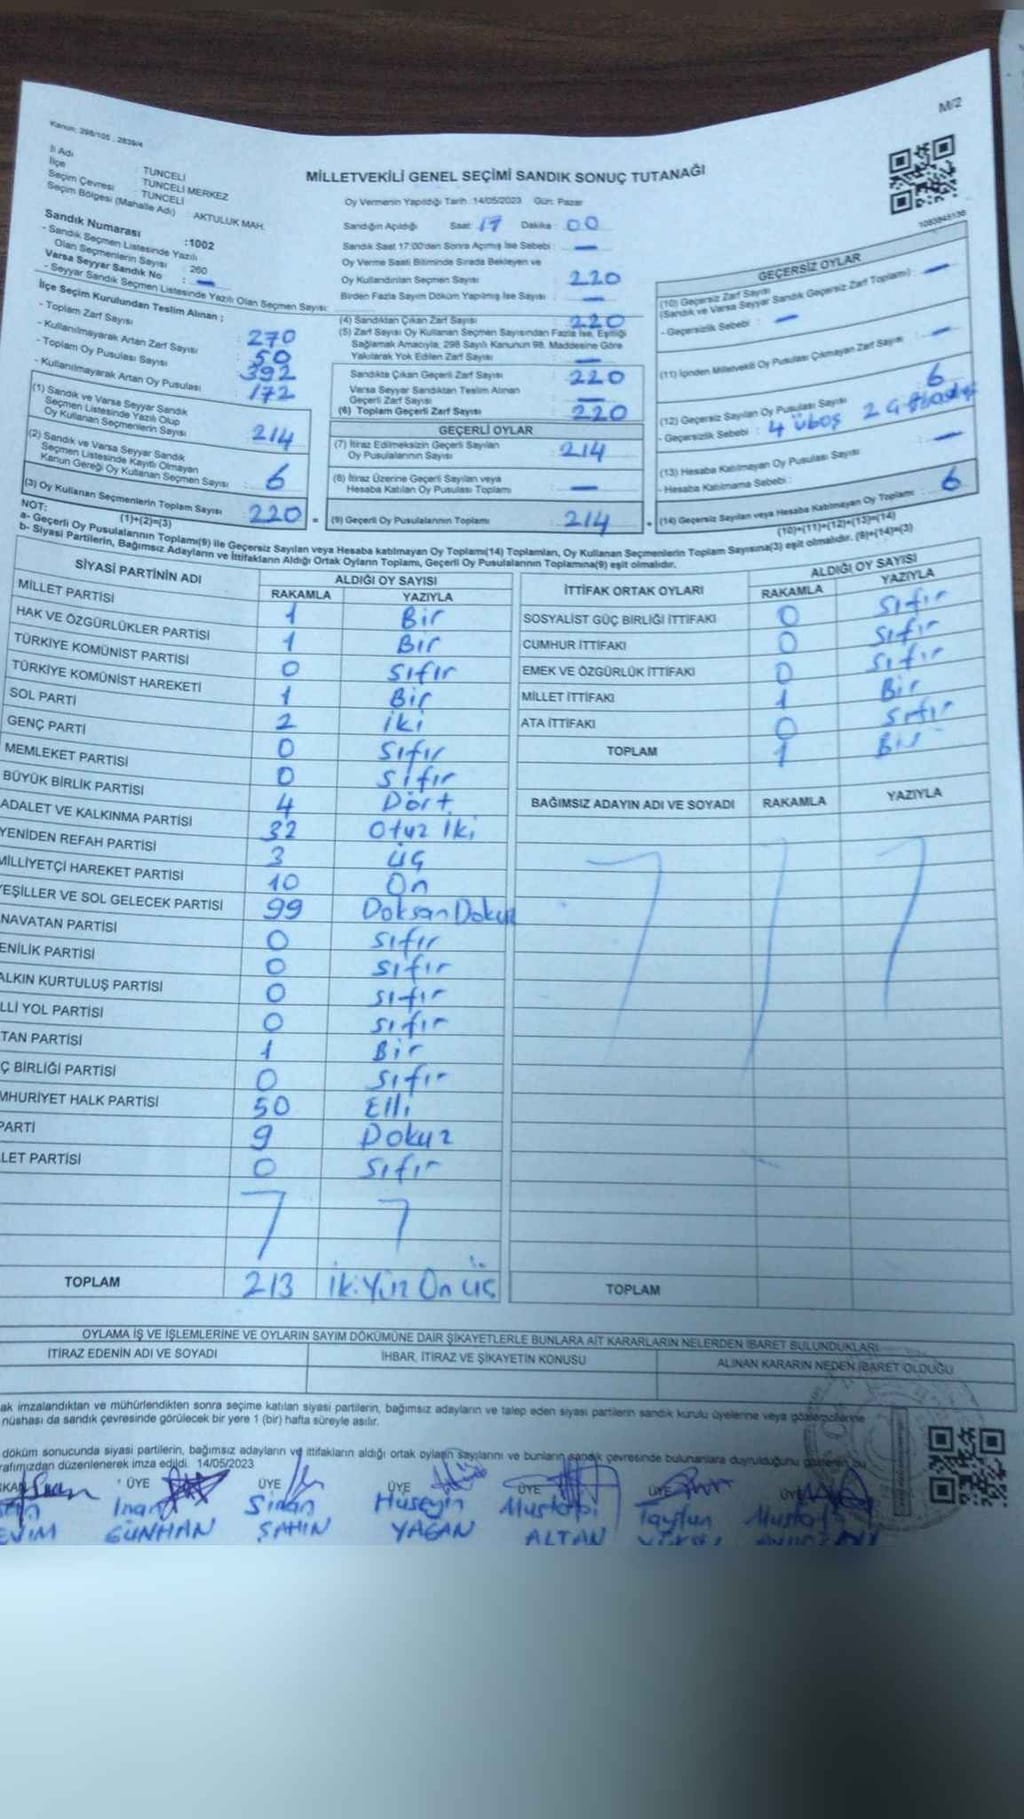 M/2
Kanun: 298/105 , 2839/4
İl Adı : TUNCELİ
İlçe : TUNCELİ MERKEZ
Seçim Çevresi : TUNCELİ
Seçim Bölgesi (Mahalle Adı) : AKTULUK MAH.
MİLLETVEKİLİ GENEL SEÇİMİ SANDIK SONUÇ TUTANAĞI
Oy Vermenin Yapıldığı Tarih :14/05/2023 Gün: Pazar
Sandığın Açıldığı Saat: 17 Dakika : 00
Sandık Saat 17:00'den Sonra Açımış İse Sebebi : —
Oy Verme Saati Bitiminde Sırada Bekleyen ve
Oy Kullandırılan Seçmen Sayısı : 220
Birden Fazla Sayım Döküm Yapılmış İse Sayısı : —
1083845136
Sandık Numarası :1002
- Sandık Seçmen Listesinde Yazılı
Olan Seçmenlerin Sayısı : 260
Varsa Seyyar Sandık No : —
- Seyyar Sandık Seçmen Listesinde Yazılı Olan Seçmen Sayısı:
İlçe Seçim Kurulundan Teslim Alınan ;
- Toplam Zarf Sayısı : 270
- Kullanılmayarak Artan Zarf Sayısı : 50
- Toplam Oy Pusulası Sayısı : 392
- Kullanılmayarak Artan Oy Pusulası : 172
(1) Sandık ve Varsa Seyyar Sandık
Seçmen Listesinde Yazılı Olup
Oy Kullanan Seçmenlerin Sayısı : 214
(2) Sandık ve Varsa Seyyar Sandık
Seçmen Listesinde Kayıtlı Olmayan
Kanun Gereği Oy Kullanan Seçmen Sayısı : 6
(3) Oy Kullanan Seçmenlerin Toplam Sayısı : 220
(1)+(2)=(3)
(4) Sandıktan Çıkan Zarf Sayısı : 220
(5) Zarf Sayısı Oy Kullanan Seçmen Sayısından Fazla İse, Eşitliği
Sağlamak Amacıyla, 298 Sayılı Kanunun 98. Maddesine Göre
Yakılarak Yok Edilen Zarf Sayısı : —
Sandıkta Çıkan Geçerli Zarf Sayısı : 220
Varsa Seyyar Sandıktan Teslim Alınan
Geçerli Zarf Sayısı : —
(6) Toplam Geçerli Zarf Sayısı : 220
GEÇERLİ OYLAR
(7) İtiraz Edilmeksizin Geçerli Sayılan
Oy Pusulalarının Sayısı : 214
(8) İtiraz Üzerine Geçerli Sayılan veya
Hesaba Katılan Oy Pusulası Toplamı : —
= (9) Geçerli Oy Pusulalarının Toplamı : 214
GEÇERSİZ OYLAR
(10) Geçersiz Zarf Sayısı
(Sandık ve Varsa Seyyar Sandık Geçersiz Zarf Toplamı) : —
- Geçersizlik Sebebi : —
(11) İçinden Milletvekili Oy Pusulası Çıkmayan Zarf Sayısı : —
(12) Geçersiz Sayılan Oy Pusulası Sayısı : 6
- Geçersizlik Sebebi : 4 üboş 2
(13) Hesaba Katılmayan Oy Pusulası Sayısı : —
- Hesaba Katılmama Sebebi :
+ (14) Geçersiz Sayılan veya Hesaba Katılmayan Oy Toplamı : 6
(10)+(11)+(12)+(13)=(14)
NOT:
a- Geçerli Oy Pusulalarının Toplamı(9) ile Geçersiz Sayılan veya Hesaba katılmayan Oy Toplamı(14) Toplamları, Oy Kullanan Seçmenlerin Toplam Sayısına(3) eşit olmalıdır. (9)+(14)=(3)
b- Siyasi Partilerin, Bağımsız Adayların ve İttifakların Aldığı Ortak Oyların Toplamı, Geçerli Oy Pusulalarının Toplamına(9) eşit olmalıdır.
SİYASİ PARTİNİN ADI ALDIĞI OY SAYISI
RAKAMLA YAZIYLA
MİLLET PARTİSİ 1 Bir
HAK VE ÖZGÜRLÜKLER PARTİSİ 1 Bir
TÜRKİYE KOMÜNİST PARTİSİ 0 Sıfır
TÜRKİYE KOMÜNİST HAREKETİ 1 Bir
SOL PARTİ 2 iki
GENÇ PARTİ 0 Sıfır
MEMLEKET PARTİSİ 0 Sıfır
BÜYÜK BİRLİK PARTİSİ 4 Dört
ADALET VE KALKINMA PARTİSİ 32 Otuz İki
YENİDEN REFAH PARTİSİ 3 üç
MİLLİYETÇİ HAREKET PARTİSİ 10 On
YEŞİLLER VE SOL GELECEK PARTİSİ 99 Doksan Dokuz
NAVATAN PARTİSİ 0 Sıfır
ENİLİK PARTİSİ 0 Sıfır
ALKIN KURTULUŞ PARTİSİ 0 Sıfır
LLİ YOL PARTİSİ 0 Sıfır
TAN PARTİSİ 1 Bir
Ç BİRLİĞİ PARTİSİ 0 Sıfır
MHURİYET HALK PARTİSİ 50 Elli
PARTİ 9 Dokuz
LET PARTİSİ 0 Sıfır
TOPLAM 213 İki Yüz On üç
İTTİFAK ORTAK OYLARI ALDIĞI OY SAYISI
RAKAMLA YAZIYLA
SOSYALİST GÜÇ BİRLİĞİ İTTİFAKI 0 Sıfır
CUMHUR İTTİFAKI 0 Sıfır
EMEK VE ÖZGÜRLÜK İTTİFAKI 0 Sıfır
MİLLET İTTİFAKI 1 Bir
ATA İTTİFAKI 0 Sıfır
TOPLAM 1 Bir
BAĞIMSIZ ADAYIN ADI VE SOYADI RAKAMLA YAZIYLA
TOPLAM
OYLAMA İŞ VE İŞLEMLERİNE VE OYLARIN SAYIM DÖKÜMÜNE DAİR ŞİKAYETLERLE BUNLARA AİT KARARLARIN NELERDEN İBARET BULUNDUKLARI
İTİRAZ EDENİN ADI VE SOYADI İHBAR, İTİRAZ VE ŞİKAYETİN KONUSU ALINAN KARARIN NEDEN İBARET OLDUĞU
ak imzalandıktan ve mühürlendikten sonra seçime katılan siyasi partilerin, bağımsız adayların ve talep eden siyasi partilerin sandık kurulu üyelerine veya gözlemcilerine
nüshası da sandık çevresinde görülecek bir yere 1 (bir) hafta süreyle asılır.
döküm sonucunda siyasi partilerin, bağımsız adayların ve ittifakların aldığı ortak oyların sayılarını ve bunların sandık çevresinde bulunanlara duyrulduğunu gösteren bu
rafımızdan düzenlenerek imza edildi. 14/05/2023
KAN ÜYE ÜYE ÜYE ÜYE ÜYE ÜYE
İnan Sinan Hüseyin Mustafa Tayfun Mustafa
EVİM GÜNHAN ŞAHİN YAĞAN ALTAN